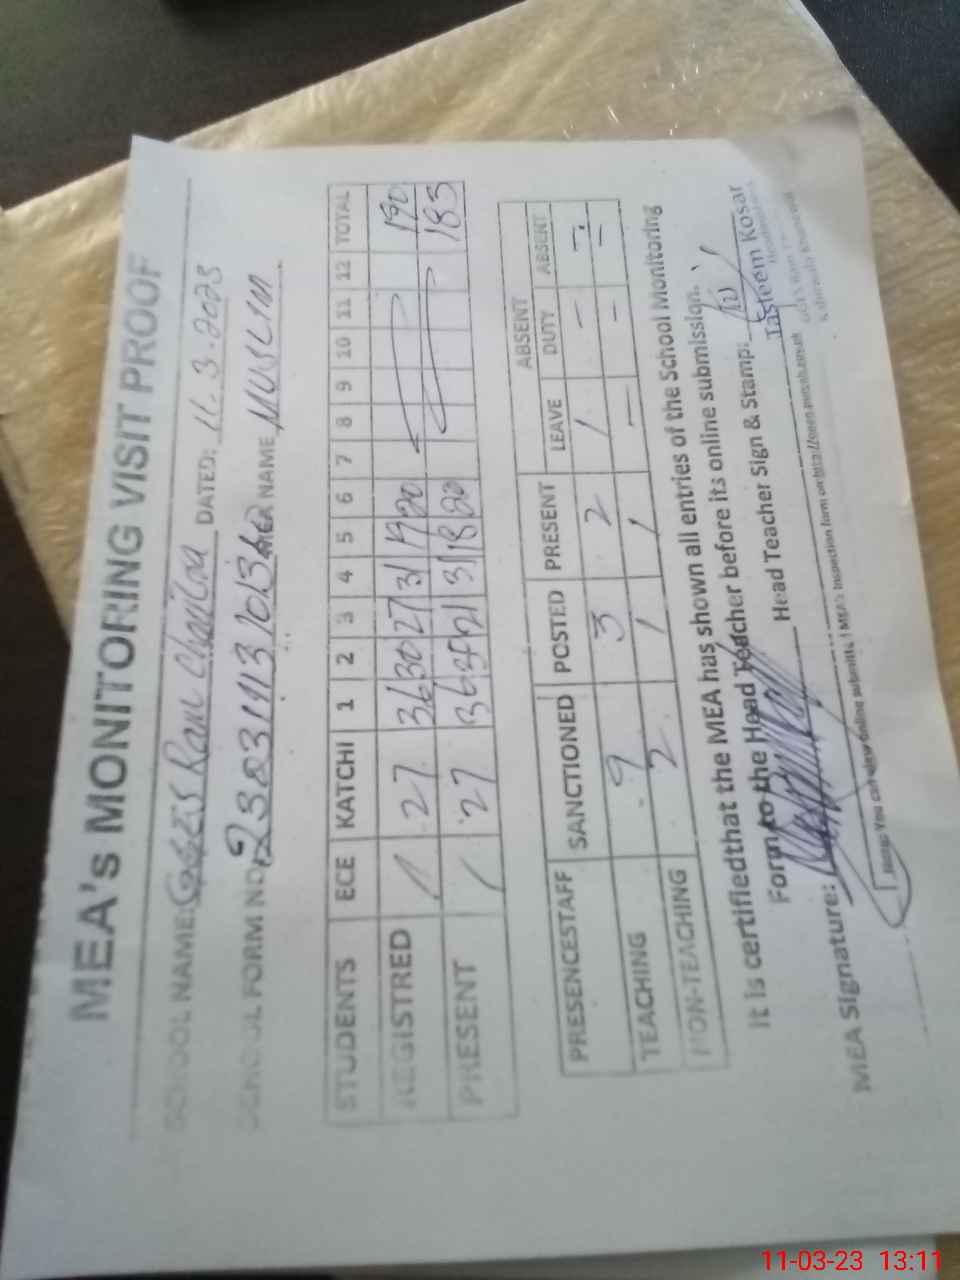 MEA's MONITORING VISIT PROOF
SCHOOL NAME: GGES Ram DATED: 11.3.2023
SCHOOL FORM NO. NAME MUSLIM
STUDENTS ECE KATCHI 1 2 3 4 5 6 7 8 9 10 11 12 TOTAL
REGISTRED / 27 36 30 27 31 19 20 190
PRESENT / 27 36 31 18 20 183
ABSENT
PRESENCESTAFF SANCTIONED POSTED PRESENT LEAVE DUTY ABSENT
TEACHING 9 3 2 1 - -
NON-TEACHING 2 1 1 - - -
It is certifiedthat the MEA has shown all entries of the School Monitoring
Form to the Head Teacher before its online submission.
MEA Signature: Head Teacher Sign & Stamp:
Tasleem Kosar
Note: You can view online submitted MEA's Inspection form on
11-03-23 13:11